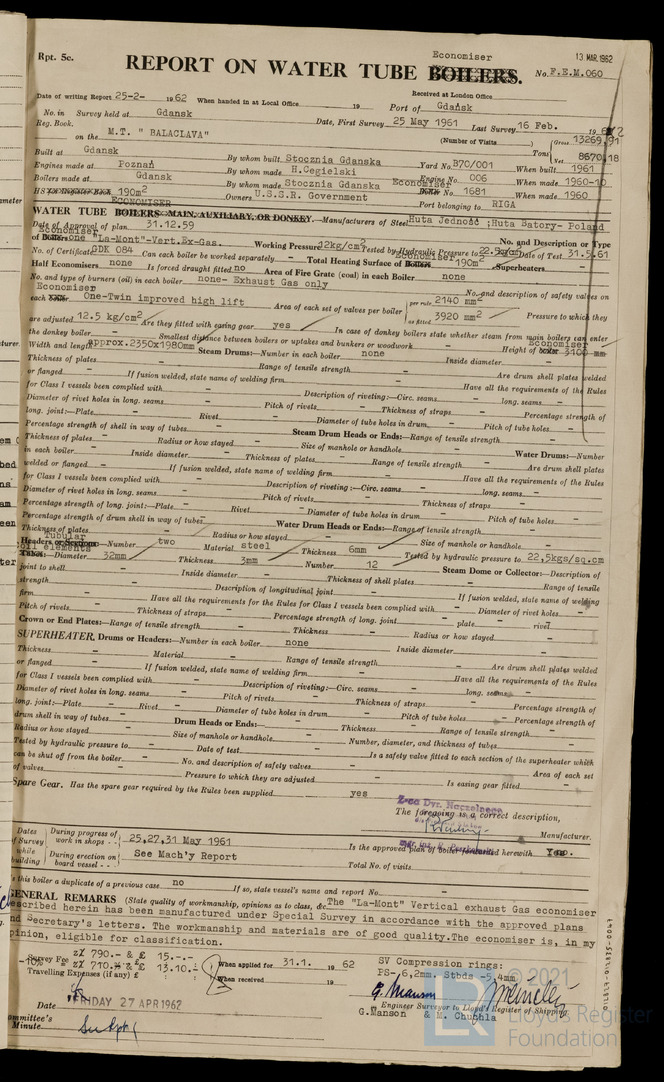 Economiser
13 MAR 1962
Rpt. 5c.
REPORT ON WATER TUBE BOILERS.
No. F.E.M.060
Received at London Office
Date of writing Report 25-2- 1962 When handed in at Local Office 19 Port of Gdańsk
No. in Survey held at Gdansk Date, First Survey 25 May 1961 Last Survey 16 Feb. 1962
Reg. Book. (Number of Visits)
on the M.T. " BALACLAVA" Tons Gross 13269,91 Net 8670.18
Built at Gdansk By whom built Stocznia Gdanska Yard No. B70/001 When built 1961
Engines made at Poznań By whom made H.Cegielski Engine No. 006 When made 1960-10
Boilers made at Gdansk By whom made Stocznia Gdanska Economiser Boiler No. 1681 When made 1960
190m² Owners U.S.S.R. Government Port belonging to RIGA
ECONOMISER
WATER TUBE BOILERS—MAIN, AUXILIARY, OR DONKEY.—Manufacturers of Steel Huta Jedność ;Huta Batory- Poland
Date of Approval of plan 31.12.59 No. and Description or Type
Economiser
of Boilers one "La-Mont"-Vert.Ex-Gas. Working Pressure 12kg/cm² Tested by Hydraulic Pressure to 22.5kg/cm² Date of Test 31.5.61
No. of Certificate GDK 084 Can each boiler be worked separately - Total Heating Surface of Boilers Economiser 190m² Superheaters -
Half Economisers none Is forced draught fitted no Area of Fire Grate (coal) in each Boiler none
No. and type of burners (oil) in each boiler none- Exhaust Gas only No. and description of safety valves on
Economiser
each boiler One-Twin improved high lift Area of each set of valves per boiler per rule 2140 mm² as fitted 3920 mm² Pressure to which they
are adjusted 12.5 kg/cm² Are they fitted with easing gear yes In case of donkey boilers state whether steam from main boilers can enter
the donkey boiler - Smallest distance between boilers or uptakes and bunkers or woodwork - Height of boiler Economiser 3100 mm
Width and length approx.2350x1980mm Steam Drums:—Number in each boiler none Inside diameter -
Thickness of plates - Range of tensile strength - Are drum shell plates welded
or flanged - If fusion welded, state name of welding firm - Have all the requirements of the Rules
for Class I vessels been complied with - Description of riveting:—Circ. seams - long. seams -
Diameter of rivet holes in long. seams - Pitch of rivets - Thickness of straps - Percentage strength of
long. joint:—Plate - Rivet - Diameter of tube holes in drum - Pitch of tube holes -
Percentage strength of shell in way of tubes - Steam Drum Heads or Ends:—Range of tensile strength -
Thickness of plates - Radius or how stayed - Size of manhole or handhole - Water Drums:—Number
in each boiler - Inside diameter - Thickness of plates - Range of tensile strength - Are drum shell plates
welded or flanged - If fusion welded, state name of welding firm - Have all the requirements of the Rules
for Class I vessels been complied with - Description of riveting:—Circ. seams - long. seams -
Diameter of rivet holes in long. seams - Pitch of rivets - Thickness of straps -
Percentage strength of long. joint:—Plate - Rivet - Diameter of tube holes in drum - Pitch of tube holes -
Percentage strength of drum shell in way of tubes - Water Drum Heads or Ends:—Range of tensile strength -
Thickness of plates - Radius or how stayed - Size of manhole or handhole -
Tubular
Headers or Sections:—Number two Material steel Thickness 6mm Tested by hydraulic pressure to 22,5kgs/sq.cm
elements
Tubes:—Diameter 32mm Thickness 3mm Number 12 Steam Dome or Collector:—Description of
joint to shell - Inside diameter - Thickness of shell plates - Range of tensile
strength - Description of longitudinal joint - If fusion welded, state name of welding
firm - Have all the requirements for the Rules for Class I vessels been complied with - Diameter of rivet holes -
Pitch of rivets - Thickness of straps - Percentage strength of long. joint - plate - rivet -
Crown or End Plates:—Range of tensile strength - Thickness - Radius or how stayed -
SUPERHEATER. Drums or Headers:—Number in each boiler none Inside diameter -
Thickness - Material - Range of tensile strength - Are drum shell plates welded
or flanged - If fusion welded, state name of welding firm - Have all the requirements of the Rules
for Class I vessels been complied with - Description of riveting:—Circ. seams - long. seams -
Diameter of rivet holes in long. seams - Pitch of rivets - Thickness of straps - Percentage strength of
long. joint:—Plate - Rivet - Diameter of tube holes in drum - Pitch of tube holes - Percentage strength of
drum shell in way of tubes - Drum Heads or Ends:— Thickness - Range of tensile strength -
Radius or how stayed - Size of manhole or handhole - Number, diameter, and thickness of tubes -
Tested by hydraulic pressure to - Date of test - Is a safety valve fitted to each section of the superheater which
can be shut off from the boiler - No. and description of safety valves - Area of each set
of valves - Pressure to which they are adjusted - Is easing gear fitted -
Spare Gear. Has the spare gear required by the Rules been supplied yes
The foregoing is a correct description,
Manufacturer.
Dates of Survey while building
During progress of work in shops -- 25,27,31 May 1961
During erection on board vessel --- See Mach'y Report
Is the approved plan of boiler forwarded herewith Yes.
Total No. of visits
Is this boiler a duplicate of a previous case no If so, state vessel's name and report No. -
GENERAL REMARKS (State quality of workmanship, opinions as to class, &c. The "La-Mont" Vertical exhaust Gas economiser
described herein has been manufactured under Special Survey in accordance with the approved plans
and Secretary's letters. The workmanship and materials are of good quality.The economiser is, in my
opinion, eligible for classification.
Survey Fee zł 790.- & £ 15.--.-
-10% zł 710.- & £ 13.10.-
Travelling Expenses (if any) £
When applied for 31.1. 1962
When received 19
SV Compression rings:
PS- 6,2mm. Stbds -5,4mm
G. Manson
Engineer Surveyor to Lloyd's Register of Shipping
G.Manson & M. Chuchla
Date FRIDAY 27 APR 1962
Committee's
Minute
© 2021
LR
Lloyd's Register
Foundation